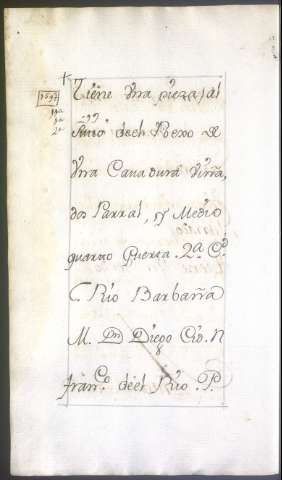 Tiene Vna pieza, al
Sitio de el Rexo de
Vna Cavadura Viña,
dos Parral, y Medio
quarto Huerta. 2ª Cd.
C. Rio Barbaña
M. Dn Diego Cid. N
franco. de el Rio. P.